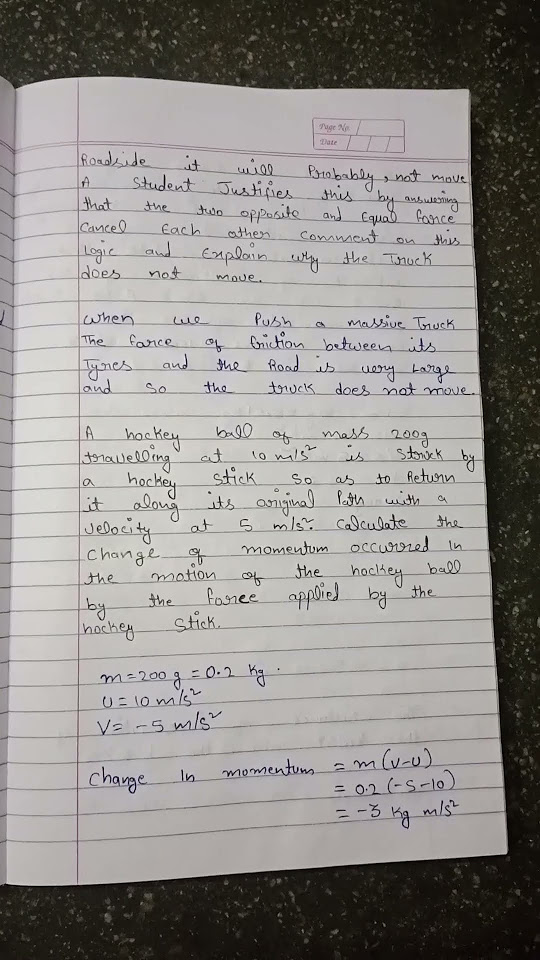 Page No.
Date
Roadside it will Probably, not move
A Student Justifies this by answering
that the two opposite and Equal force
Cancel Each other comment on this
Logic and Explain why the Truck
does not move.
when we Push a massive Truck
The force of friction between its
Tyres and the Road is very Large
and so the truck does not move.
A hockey ball of mass 200g
travelling at 10 m/s² is struck by
a hockey stick so as to Return
it along its original Path with a
velocity at 5 m/s². Calculate the
change of momentum occurred in
the motion of the hockey ball
by the force applied by the
hockey stick.
m=200g = 0.2 Kg.
U = 10 m/s²
V= -5 m/s²
Change In momentum = m(V-U)
= 0.2(-5-10)
= -3 Kg m/s²